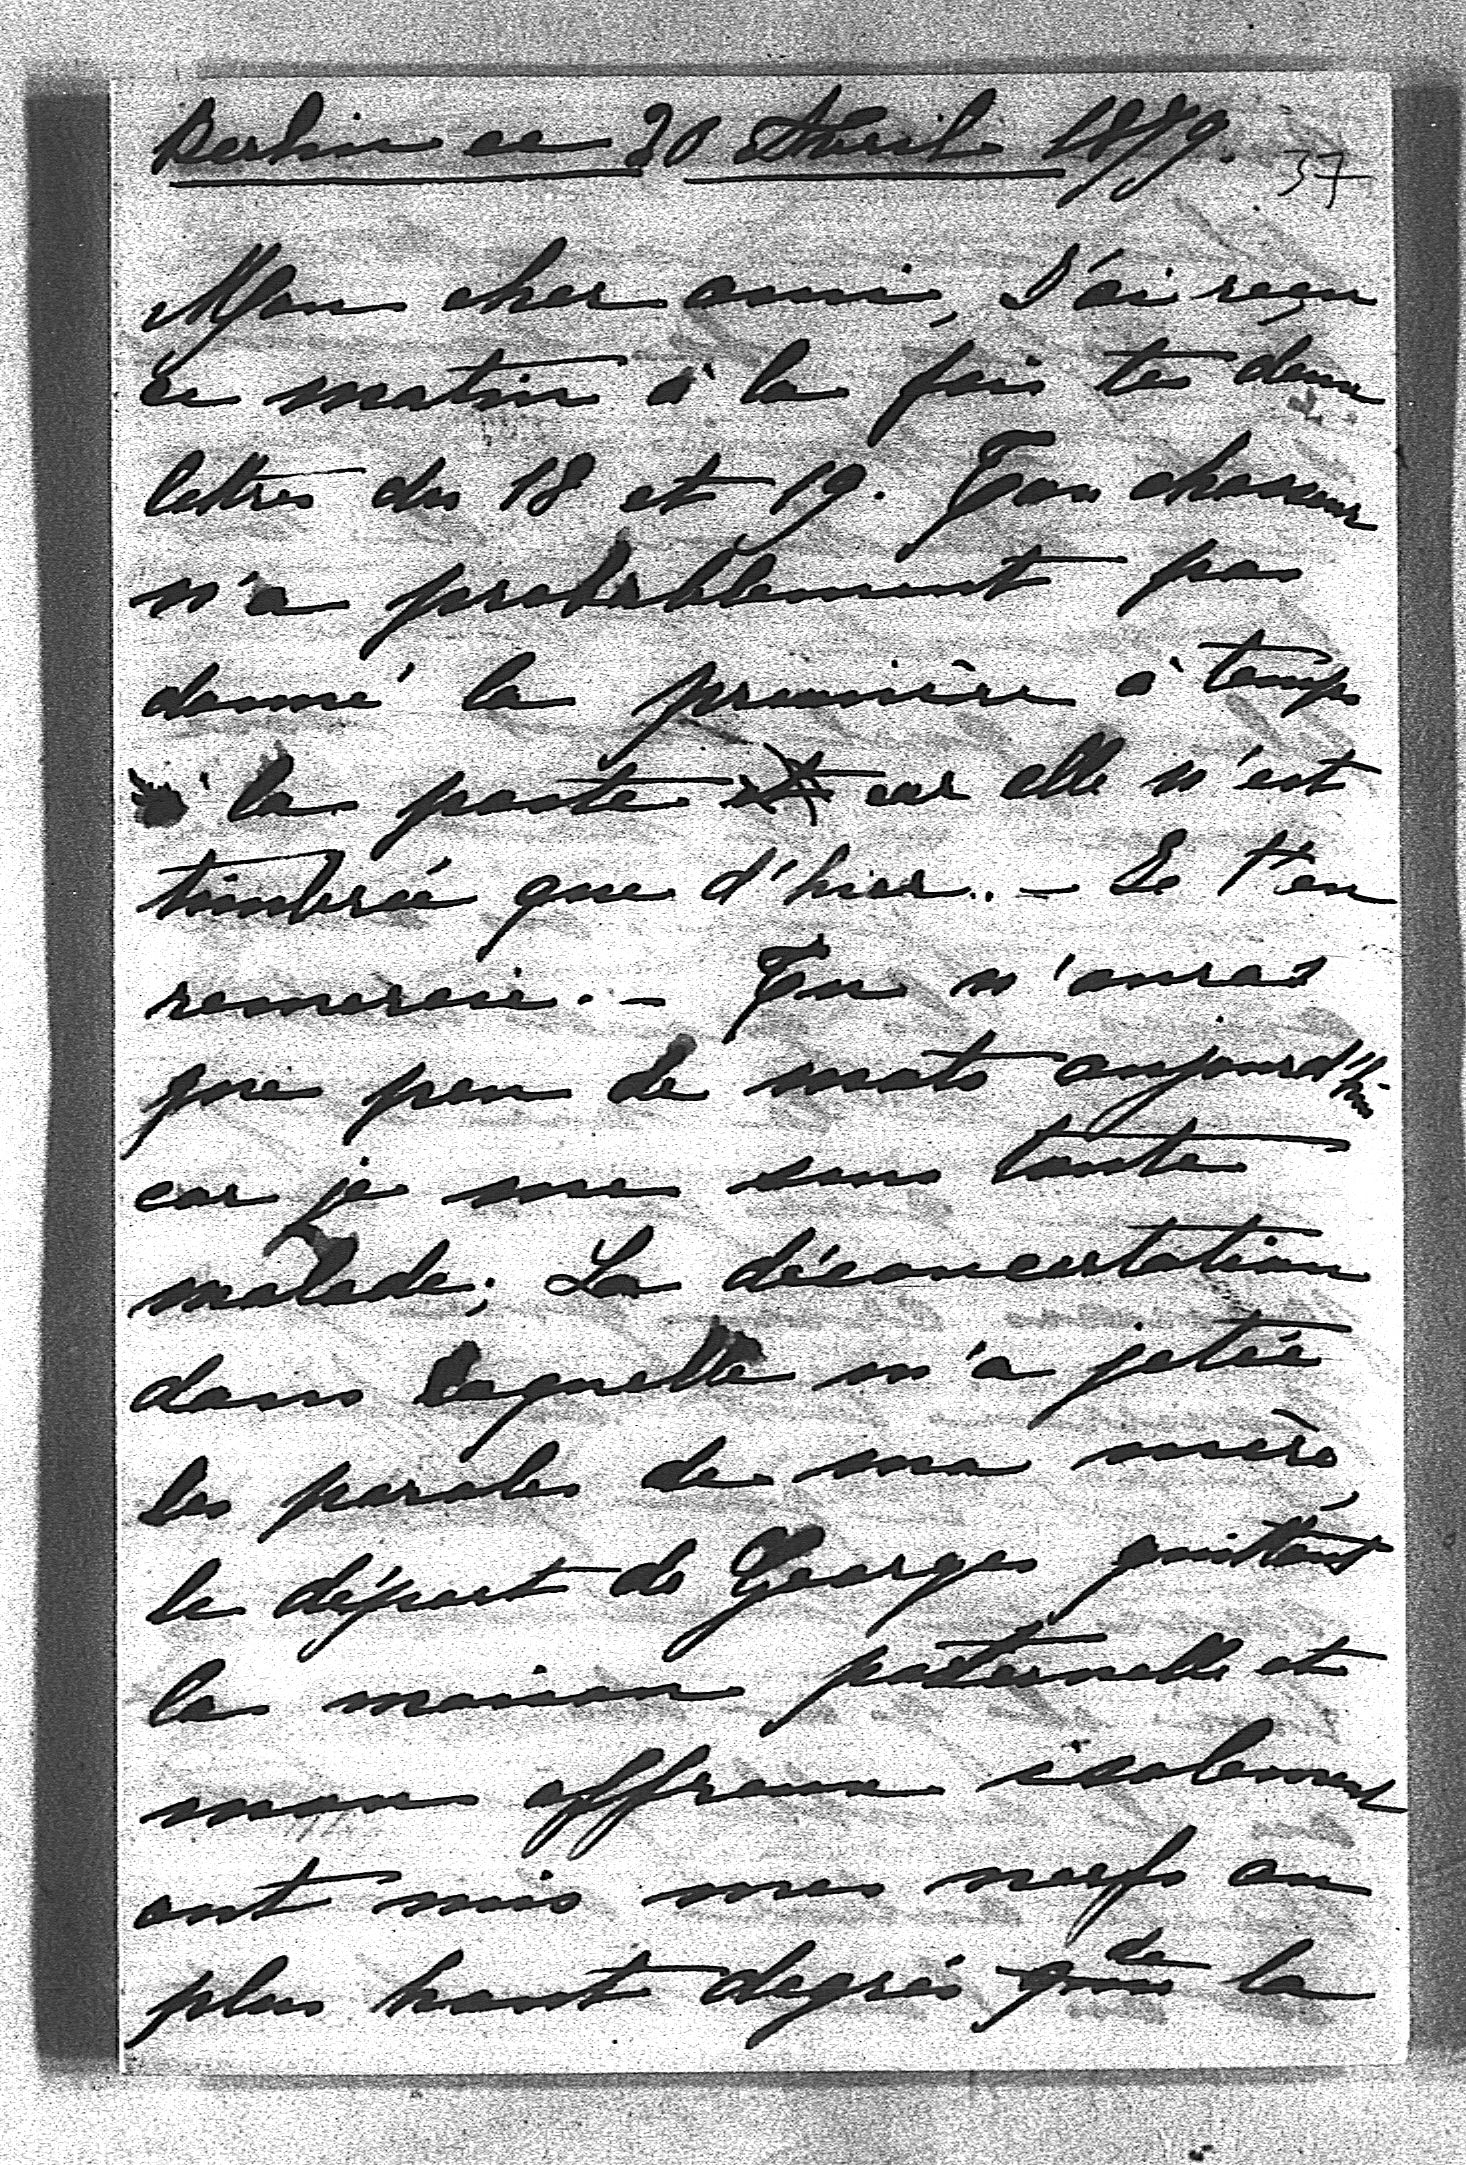 Berlin ce 20 Avril 1879.
37
Mon cher ami, J'ai reçu
ce matin à la fois tes deux
lettres du 18 et 19. Ton chasseur
n'a probablement pas
donné la première à temps
à la poste et car elle n'est
timbrée que d'hier. – Je t'en
remercie. – Tu n'auras
que peu de mots aujourd'hui
car je me sens toute
malade; La déconcertation
dans laquelle m'a jetée
les paroles de ma mère,
le départ de Georges quittant
la maison paternelle et
mon affreux isolement
ont mis mes nerfs au
plus haut degrés de la